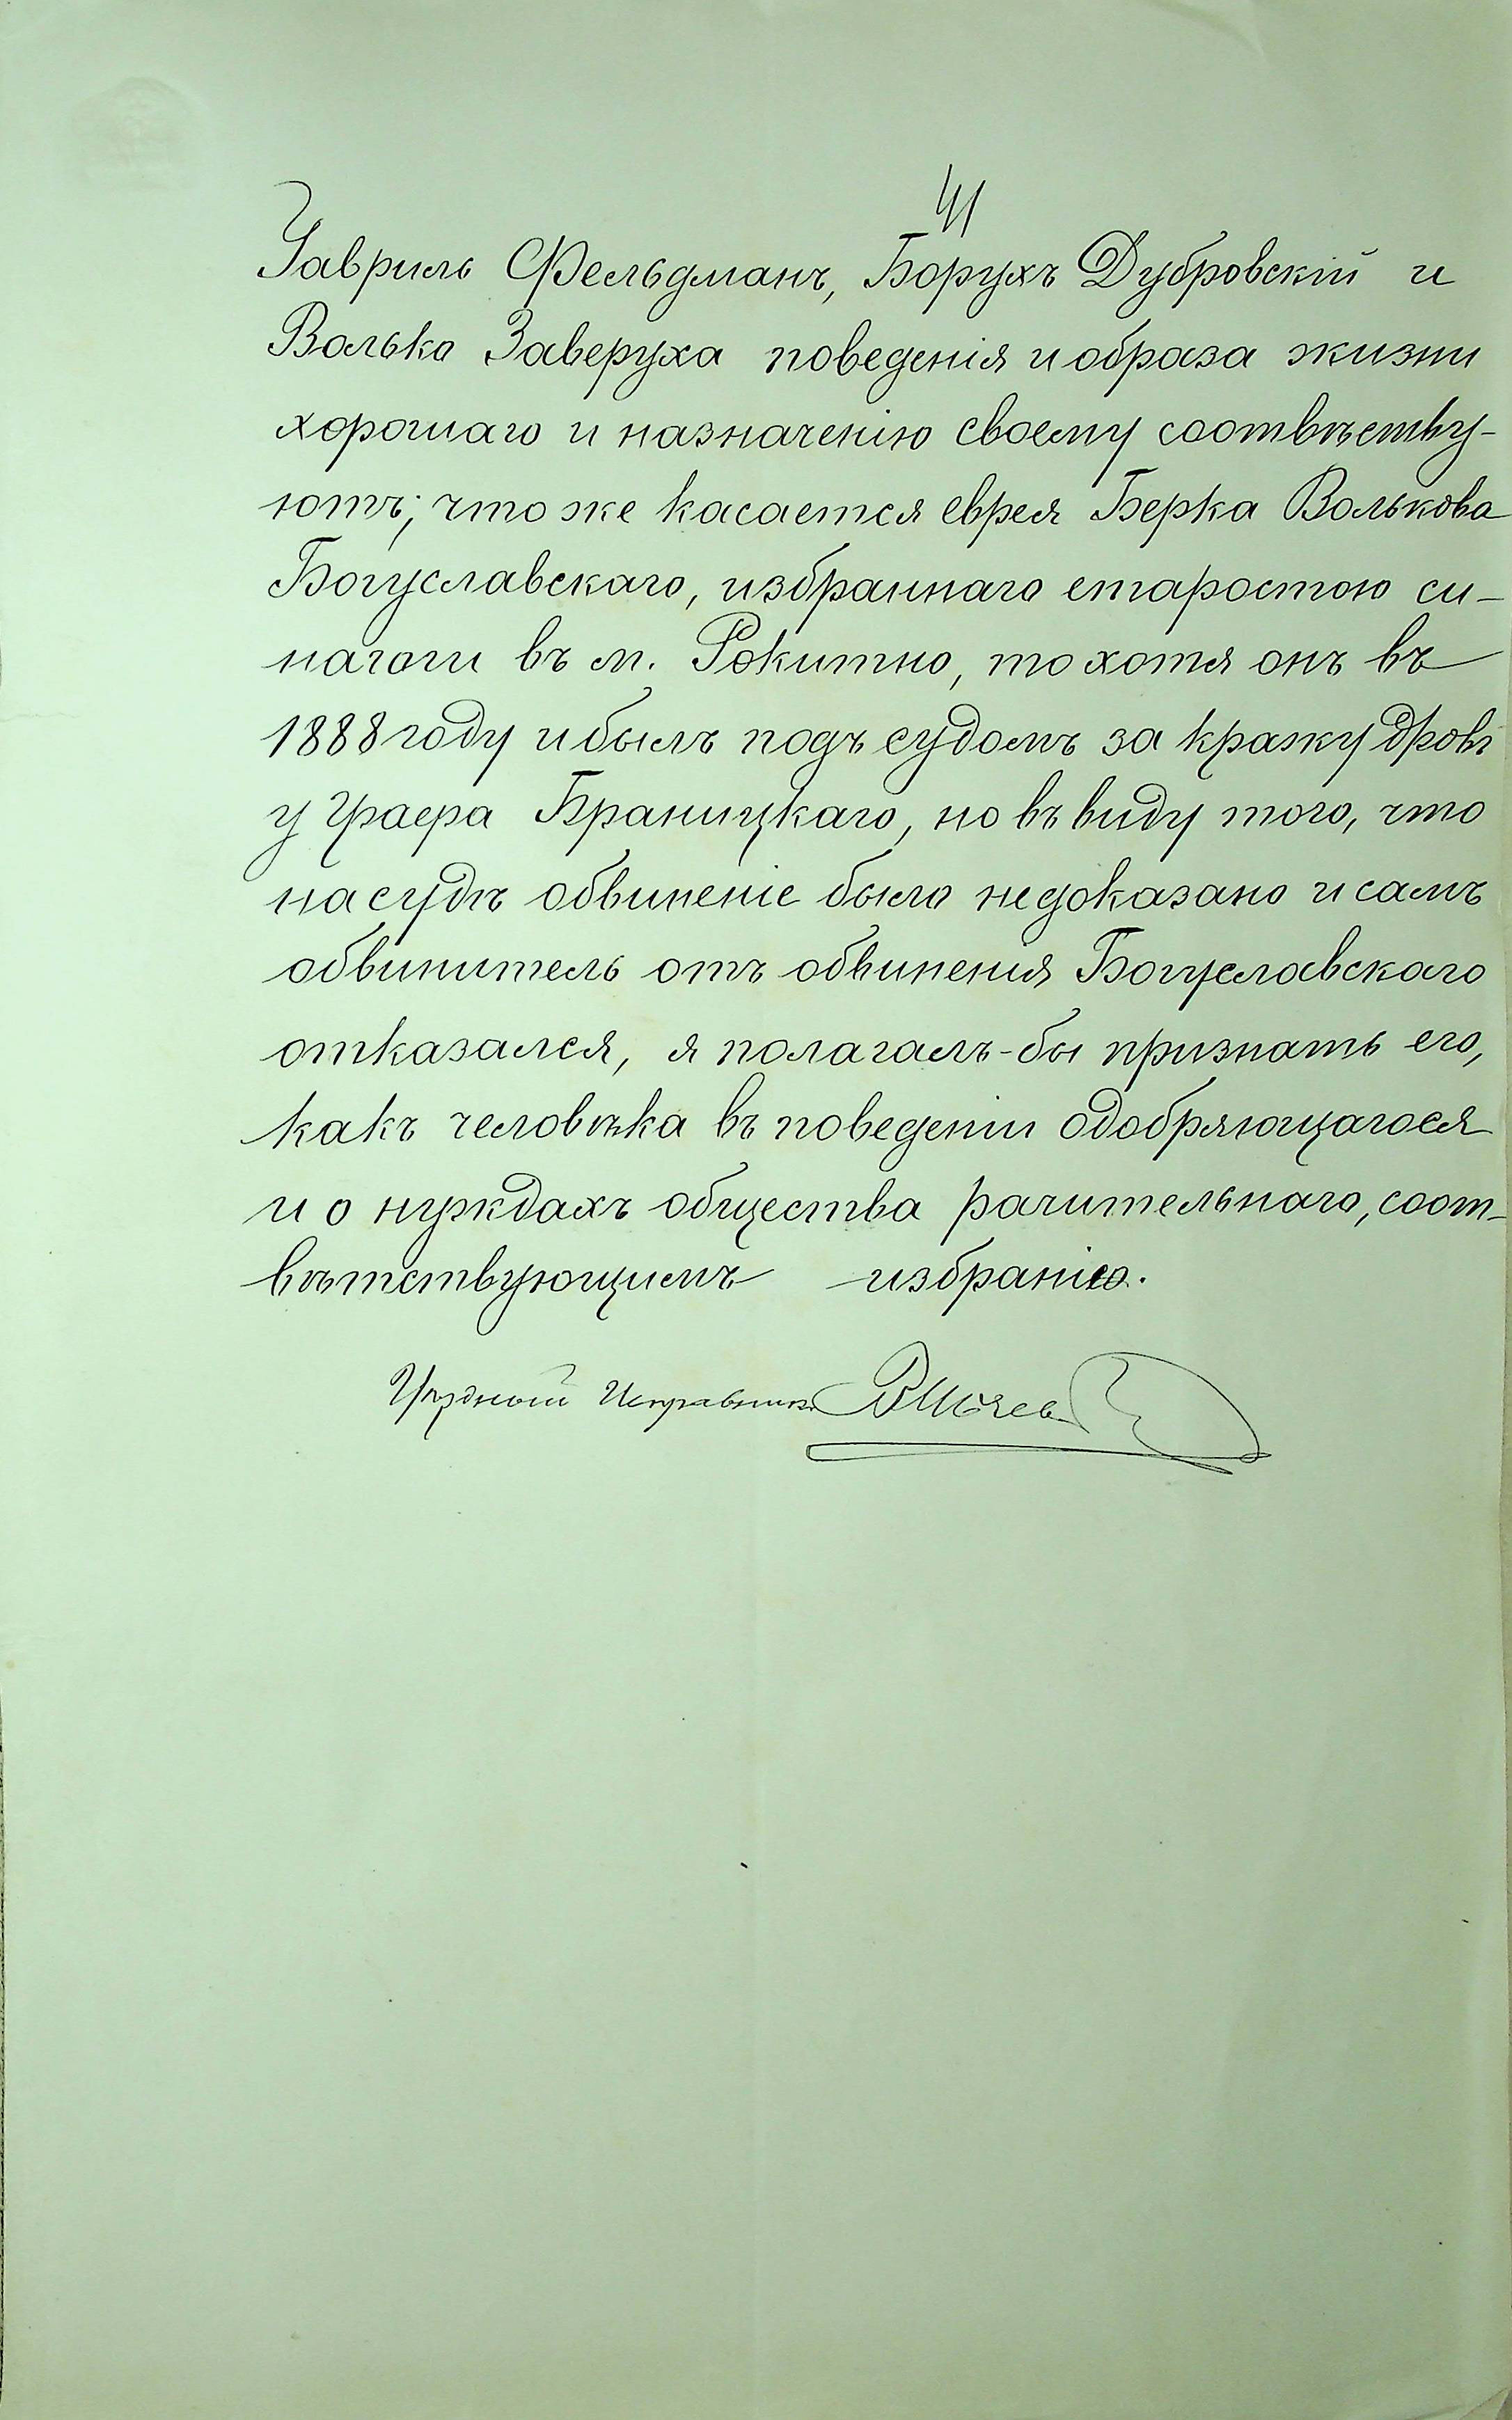 41
Гавриль Фельдманъ, Борухъ Дубровскій и
Волько Заверуха поведенія и образа жизни
хорошаго и назначенію своему соотвѣтству-
ютъ; что же касается еврея Берка Волькова
Богуславскаго, избраннаго старостою си-
нагоги въ м. Рокитно, то хотя онъ въ
1888 году и былъ подъ судомъ за кражу дровъ
у Графа Браницкаго, но въ виду того, что
на судѣ обвиненіе было недоказано и самъ
обвинитель отъ обвиненія Богуславскаго
отказался, я полагалъ-бы признать его,
какъ человѣка въ поведеніи одобряющагося
и о нуждахъ общества рачительнаго, соот-
вѣтствующимъ избранію.
Уѣздный Исправникъ